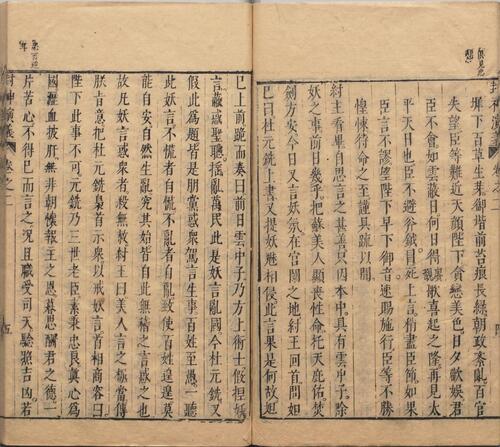 封神演 卷二
下百草生芽御前苔痕長綠朝政紊亂百官
失望臣等難近天顏陛下貪戀美色日夕歡娛君
臣不會如雲蔽日何日得覩賡歌喜起之隆再見太
平天日也臣不避斧鉞冐死上言稍盡臣節如果
臣言不謬望陛下早下御音速賜施行臣等不勝
惶悚待命之至謹具疏以聞
紂王看畢自思言之甚善只因本中具有雲中子除
妖之事前日幾乎把蘇美人喪性命托天庇佑焚
劍方安今日又言妖氛在宮闈之地紂王回首問妲
已曰杜元銑上書又提妖魅相侵此言果是何故妲
已上前跪而奏曰前日雲中子乃方上術士假捏妖
言蔽惑聖聰搖亂萬民此是妖言亂國今杜元銑又
假此為題皆是朋黨惑衆駕言生事百姓至愚一聽
此妖言不慌者自慌不亂者自亂致使百姓遑遑莫
能自安自然生亂究其始皆自此無稽之言惑之也
故凡妖言惑衆者殺無赦紂王曰美人言之極當傳
朕旨意把杜元銑梟首示衆以戒妖言首相商容曰
陛下此事不可元銑乃三世老臣素秉忠良真心為
國瀝血披肝無非朝懷報主之恩暮思酬君之德一
片苦心不得已而言之況且職受司天驗照吉凶若
封神演義 卷之二 五